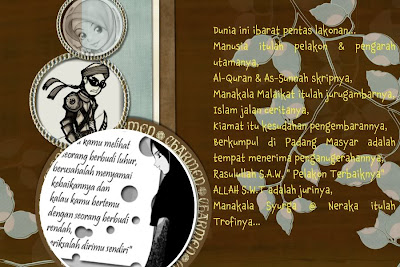 Dunia ini ibarat pentas lakonan...
Manusia itulah pelakon & pengarah
utamanya,
Al-Quran & As-Sunnah skripnya,
Manakala Malaikat itulah jurugambarnya,
Islam jalan ceritanya,
Kiamat itu kesudahan pengembarannya,
Berkumpul di Padang Masyar adalah
tempat menerima penganugerahannya,
Rasulullah S.A.W, "Pelakon Terbaiknya"
ALLAH S.W.T adalah jurinya,
Manakala Syurga @ Neraka itulah
Trofinya...
kamu melihat
seorang berbudi luhur,
berusahalah menyamai
kebaikannya dan
kalau kamu bertemu
dengan seorang berbudi
rendah,
dirimu sendiri"